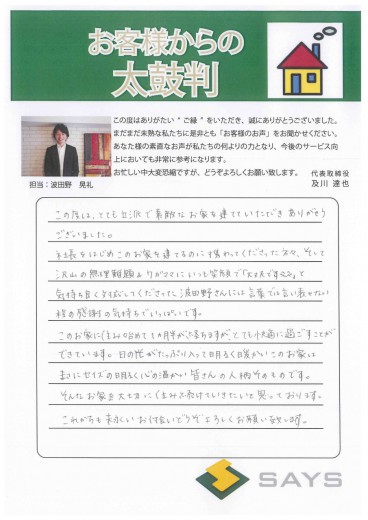 お客様からの
太鼓判
この度はありがたい“ご縁”をいただき、誠にありがとうございました。
まだまだ未熟な私たちに是非とも「お客様のお声」をお聞かせください。
あなた様の素直なお声が私たちの何よりの力となり、今後のサービス向
上においても非常に参考になります。
お忙しい中大変恐縮ですが、どうぞよろしくお願い致します。
代表取締役
及川 達也
担当：波田野 晃礼
この度は、とても立派で素敵なお家を建てていただき ありがとう
ございました。
社長をはじめこのお家を建てるのに携わってくださった方々、そして
沢山の無理難題ありがたいにいつも笑顔で「大丈夫ですよ」と
気持ち良く対応してくださった波田野さんには言葉では言い表せない
程の感謝の気持ちでいっぱいです。
このお家に住み始めて1ヵ月半が経ちますが、とても快適に過ごすことが
できています。日の光がたっぷり入って明るく暖かいこのお家は
まさにセイズの明るく心の温かい皆さんの人柄そのものです。
そんなお家を大切に住み続けていきたいと思っております。
これからも末永いお付合いどうぞよろしくお願い致します。
SAYS